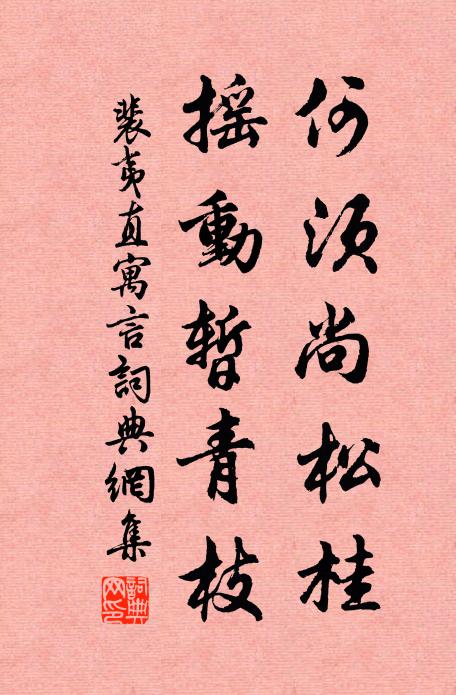 何須尚松桂
搖動暫青枝
裴夷直寓言詞典網集
詞典网印